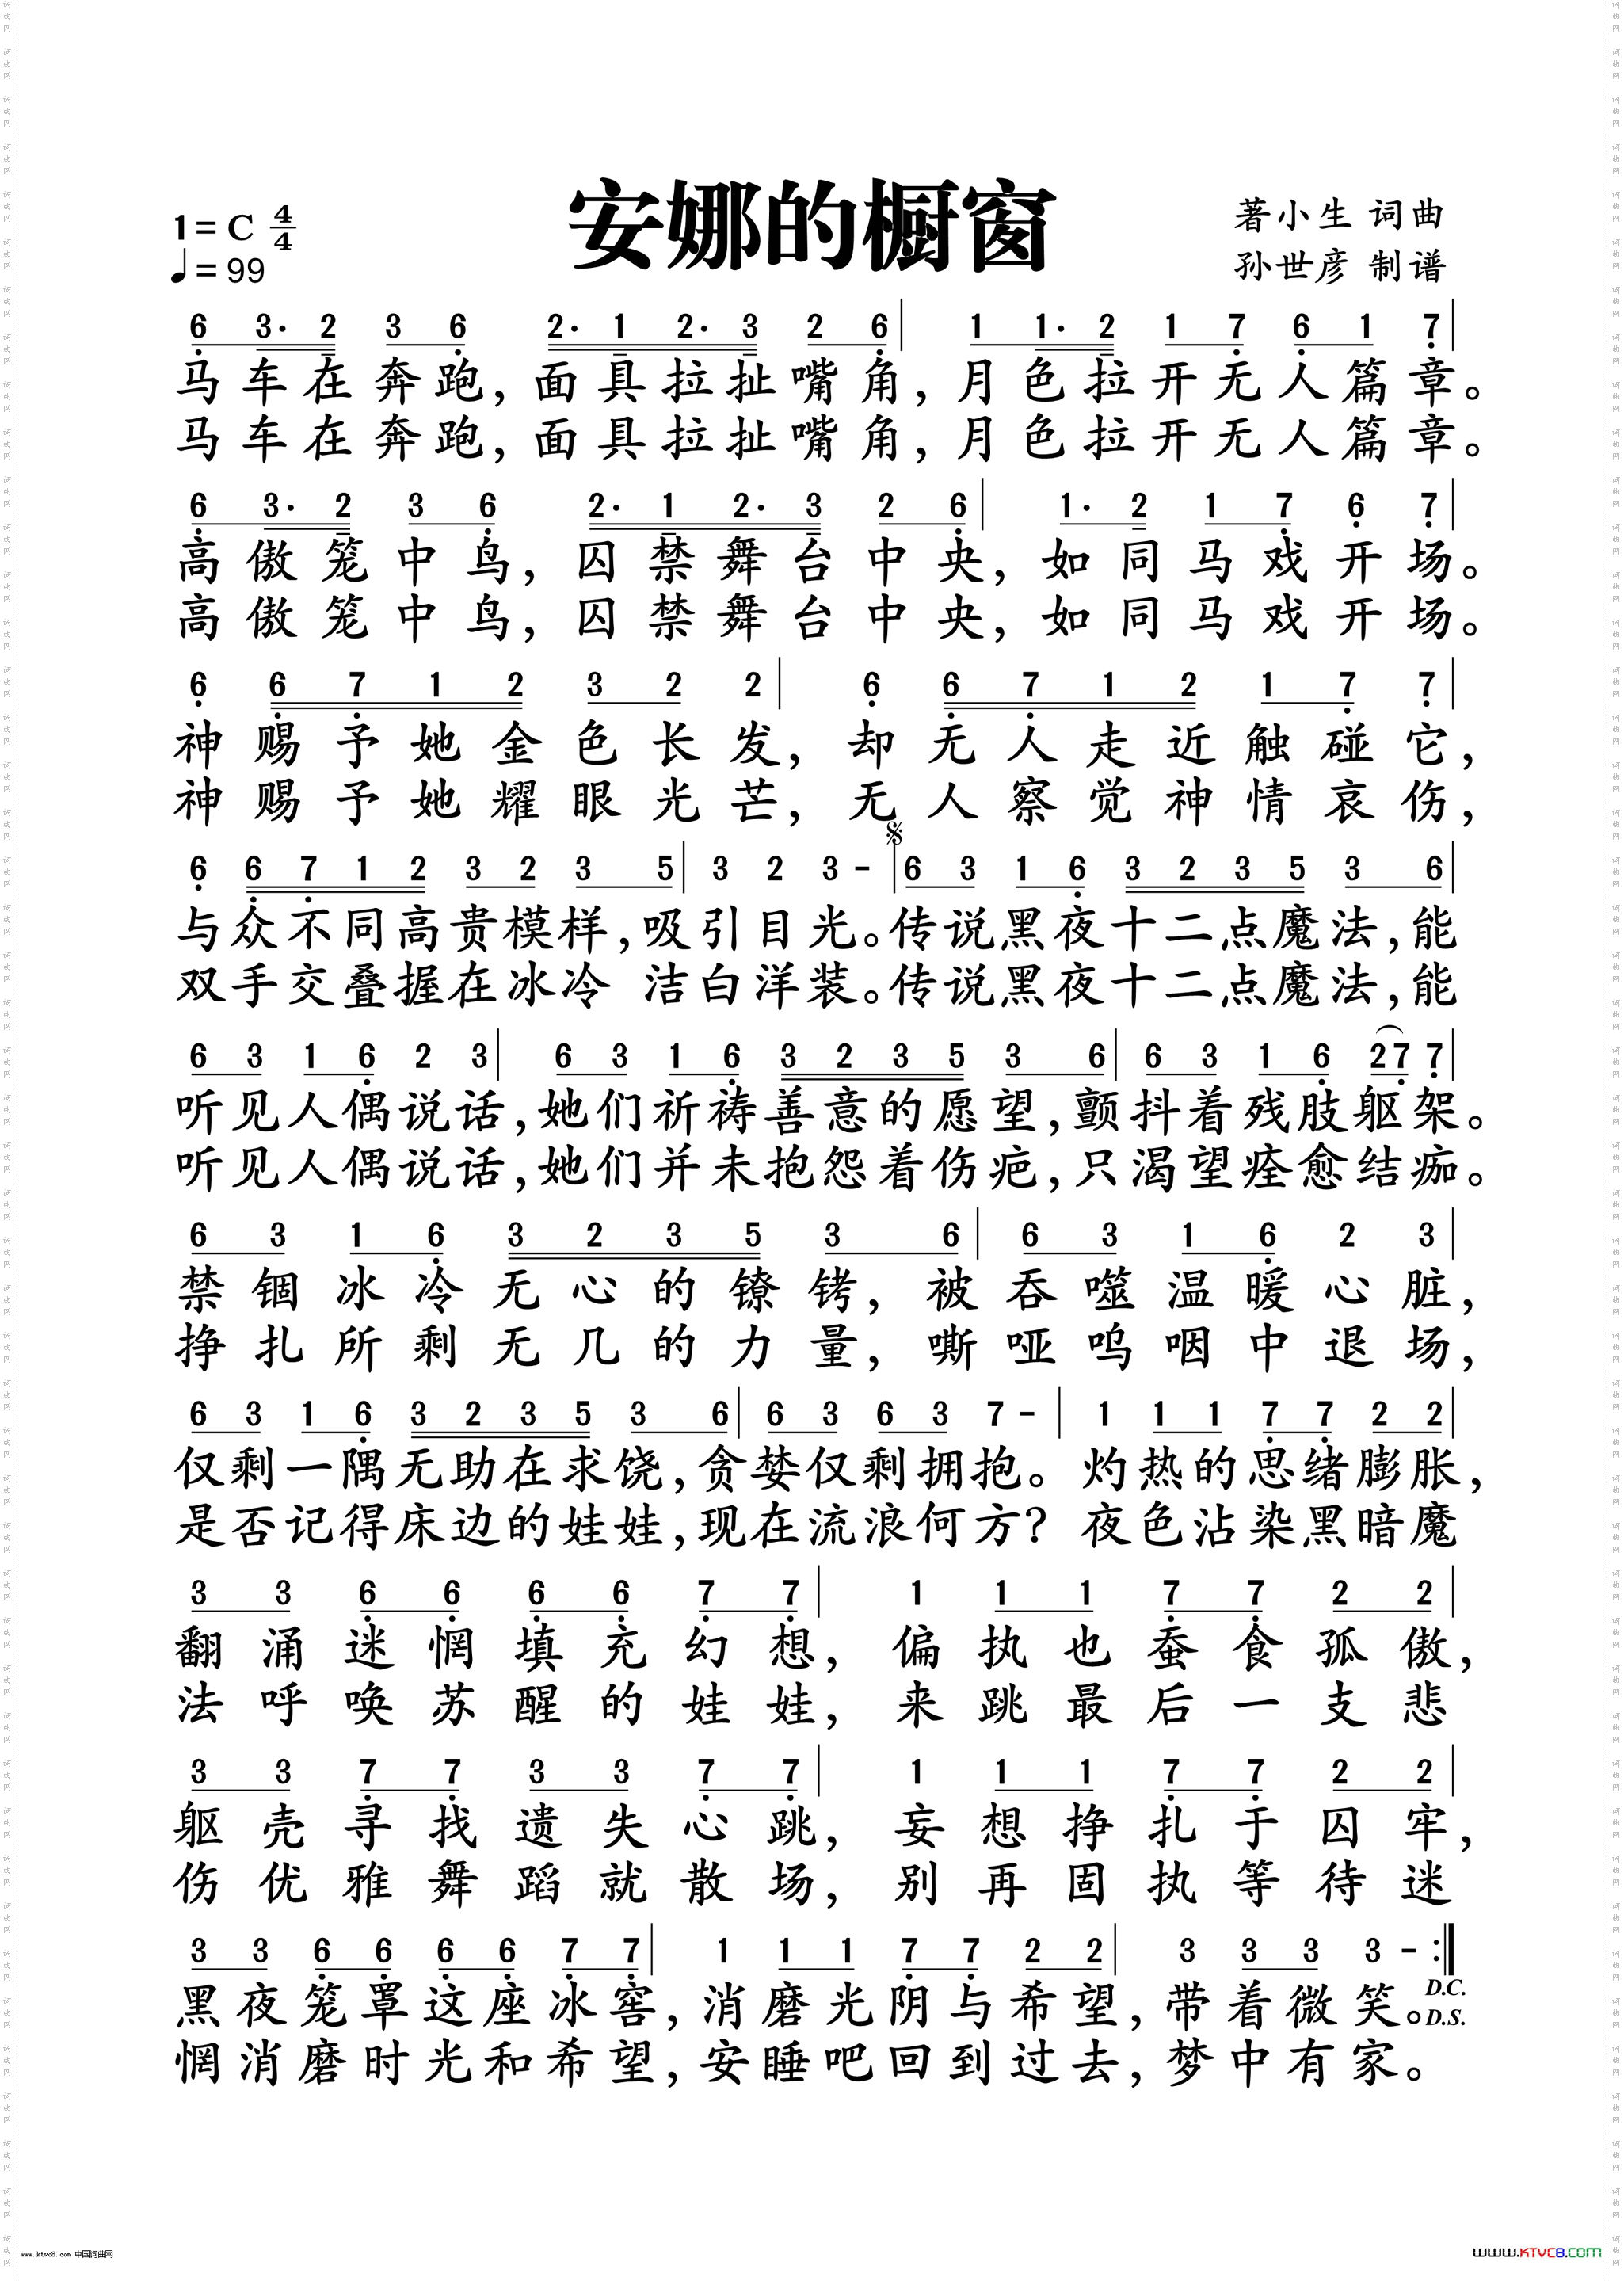 安娜的橱窗
1=C 4/4
♩=99
著小生 词曲
孙世彦 制谱
6 3· 2 3 6 2· 1 2· 3 2 6 | 1 1· 2 1 7 6 1 7 |
马车在奔跑，面具拉扯嘴角，月色拉开无人篇章。
马车在奔跑，面具拉扯嘴角，月色拉开无人篇章。
6 3· 2 3 6 2· 1 2· 3 2 6 | 1· 2 1 7 6 7 |
高傲笼中鸟，囚禁舞台中央，如同马戏开场。
高傲笼中鸟，囚禁舞台中央，如同马戏开场。
6 6 7 1 2 3 2 2 | 6 6 7 1 2 1 7 7 |
神赐予她金色长发，却无人走近触碰它，
神赐予她耀眼光芒，无人察觉神情哀伤，
6 6 7 1 2 3 2 3 5 | 3 2 3 - | 6 3 1 6 3 2 3 5 3 6 |
与众不同高贵模样，吸引目光。传说黑夜十二点魔法，能
双手交叠握在冰冷 洁白洋装。传说黑夜十二点魔法，能
6 3 1 6 2 3 | 6 3 1 6 3 2 3 5 3 6 | 6 3 1 6 2 7 7 |
听见人偶说话，她们祈祷善意的愿望，颤抖着残肢躯架。
听见人偶说话，她们并未抱怨着伤疤，只渴望痊愈结痂。
6 3 1 6 3 2 3 5 3 6 | 6 3 1 6 2 3 |
禁锢冰冷无心的镣铐，被吞噬温暖心脏，
挣扎所剩无几的力量，嘶哑呜咽中退场，
6 3 1 6 3 2 3 5 3 6 | 6 3 6 3 7 - | 1 1 1 7 7 2 2 |
仅剩一隅无助在求饶，贪婪仅剩拥抱。灼热的思绪膨胀，
是否记得床边的娃娃，现在流浪何方？夜色沾染黑暗魔
3 3 6 6 6 6 7 7 | 1 1 1 7 7 2 2 |
翻涌迷惘填充幻想，偏执也蚕食孤傲，
法呼唤苏醒的娃娃，来跳最后一支悲
3 3 7 7 3 3 7 7 | 1 1 1 7 7 2 2 |
躯壳寻找遗失心跳，妄想挣扎于囚牢，
伤优雅舞蹈就散场，别再固执等待迷
3 3 6 6 6 6 7 7 | 1 1 1 7 7 2 2 | 3 3 3 3 - :|
黑夜笼罩这座冰窖，消磨光阴与希望，带着微笑。D.C.
D.S.
惘消磨时光和希望，安睡吧回到过去，梦中有家。
www.ktvc8.com 中国词曲网
WWW.KTVC8.COM